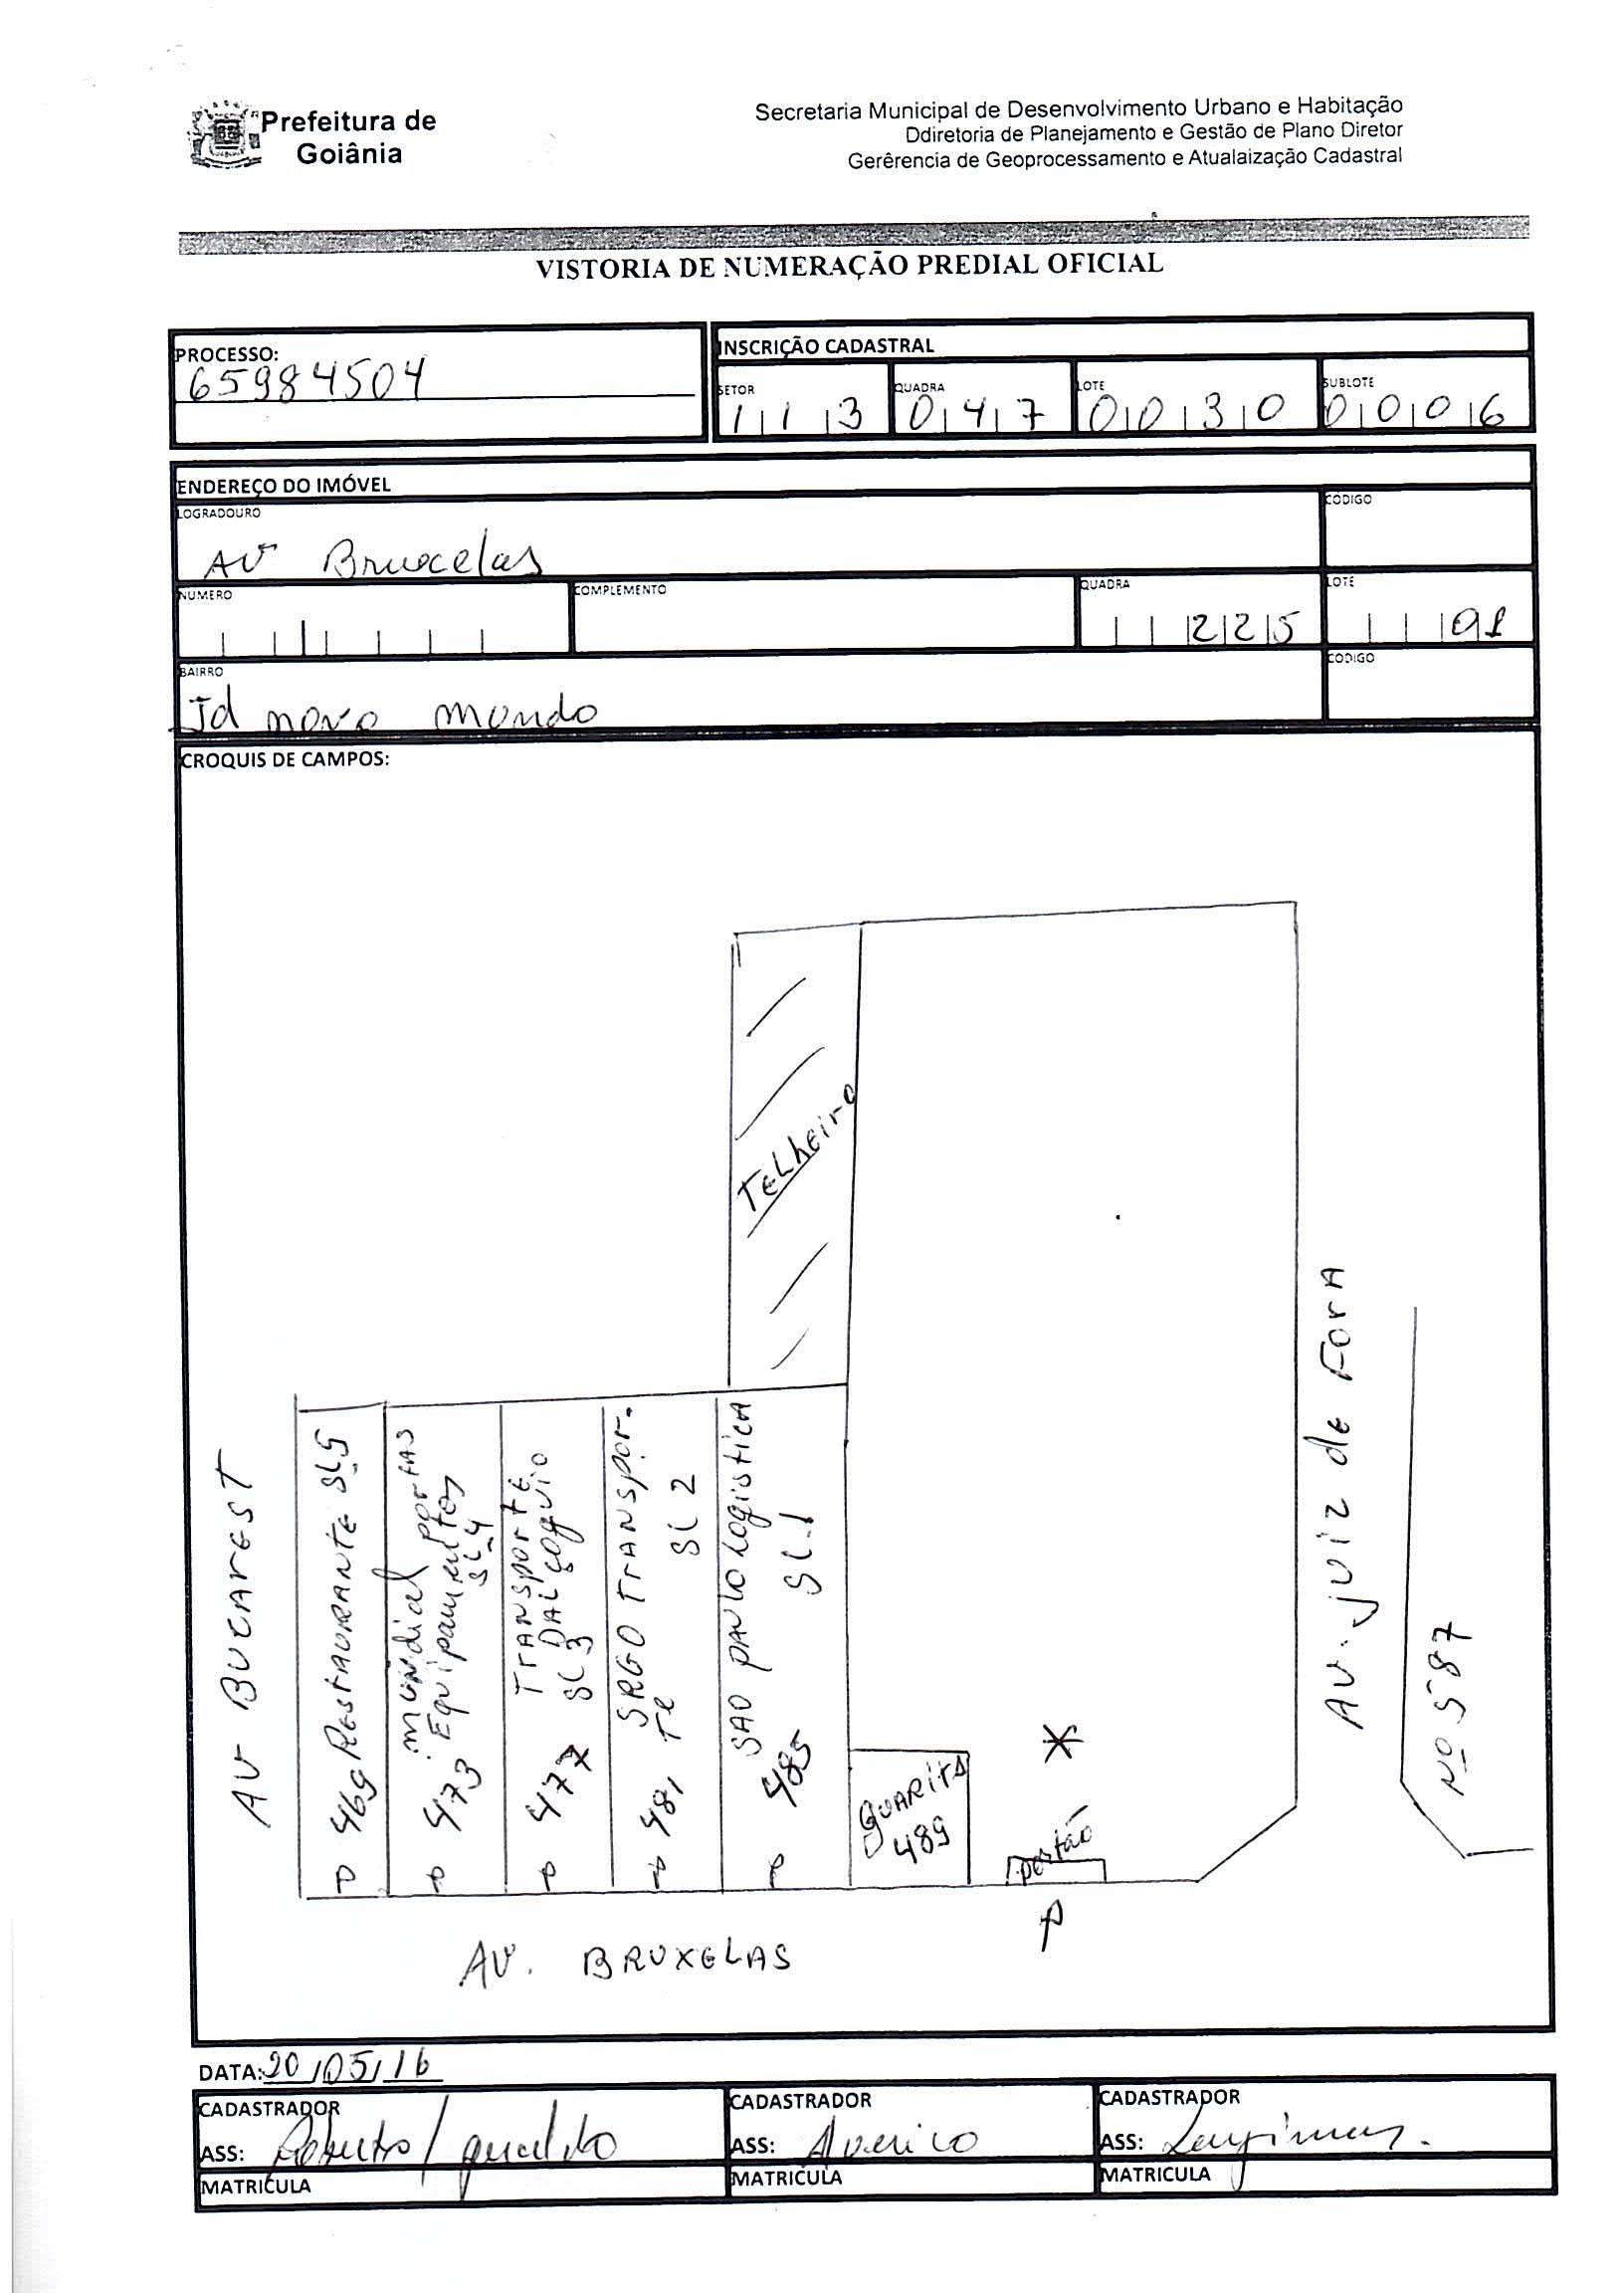 Prefeitura de
Goiânia
Secretaria Municipal de Desenvolvimento Urbano e Habitação
Ddiretoria de Planejamento e Gestão de Plano Diretor
Gerêrencia de Geoprocessamento e Atualaização Cadastral
VISTORIA DE NUMERAÇÃO PREDIAL OFICIAL
PROCESSO:
65984504
INSCRIÇÃO CADASTRAL
SETOR
113
QUADRA
047
LOTE
0030
SUBLOTE
0006
ENDEREÇO DO IMÓVEL
LOGRADOURO
AV Bruxelas
CODIGO
NUMERO
COMPLEMENTO
QUADRA
225
LOTE
01
BAIRRO
Jd novo mundo
CODIGO
CROQUIS DE CAMPOS:
TELheiro
AV BUCAREST
469 RESTAURANTE SL5
P
mundial portas
473 Equipamentos
SL4
P
TRANSporte
477 DALÇOQUIO
SL3
P
SRGO TRANSpor-
481 Te SL 2
P
SAO PAULO Logistica
485 SL.1
P
guARITA
489
portão
P
AV. juiz de ForA
Nº 587
AV. BRUXELAS
DATA: 20/05/16
CADASTRADOR
ASS:
MATRICULA
CADASTRADOR
ASS: Averico
MATRICULA
CADASTRADOR
ASS:
MATRICULA